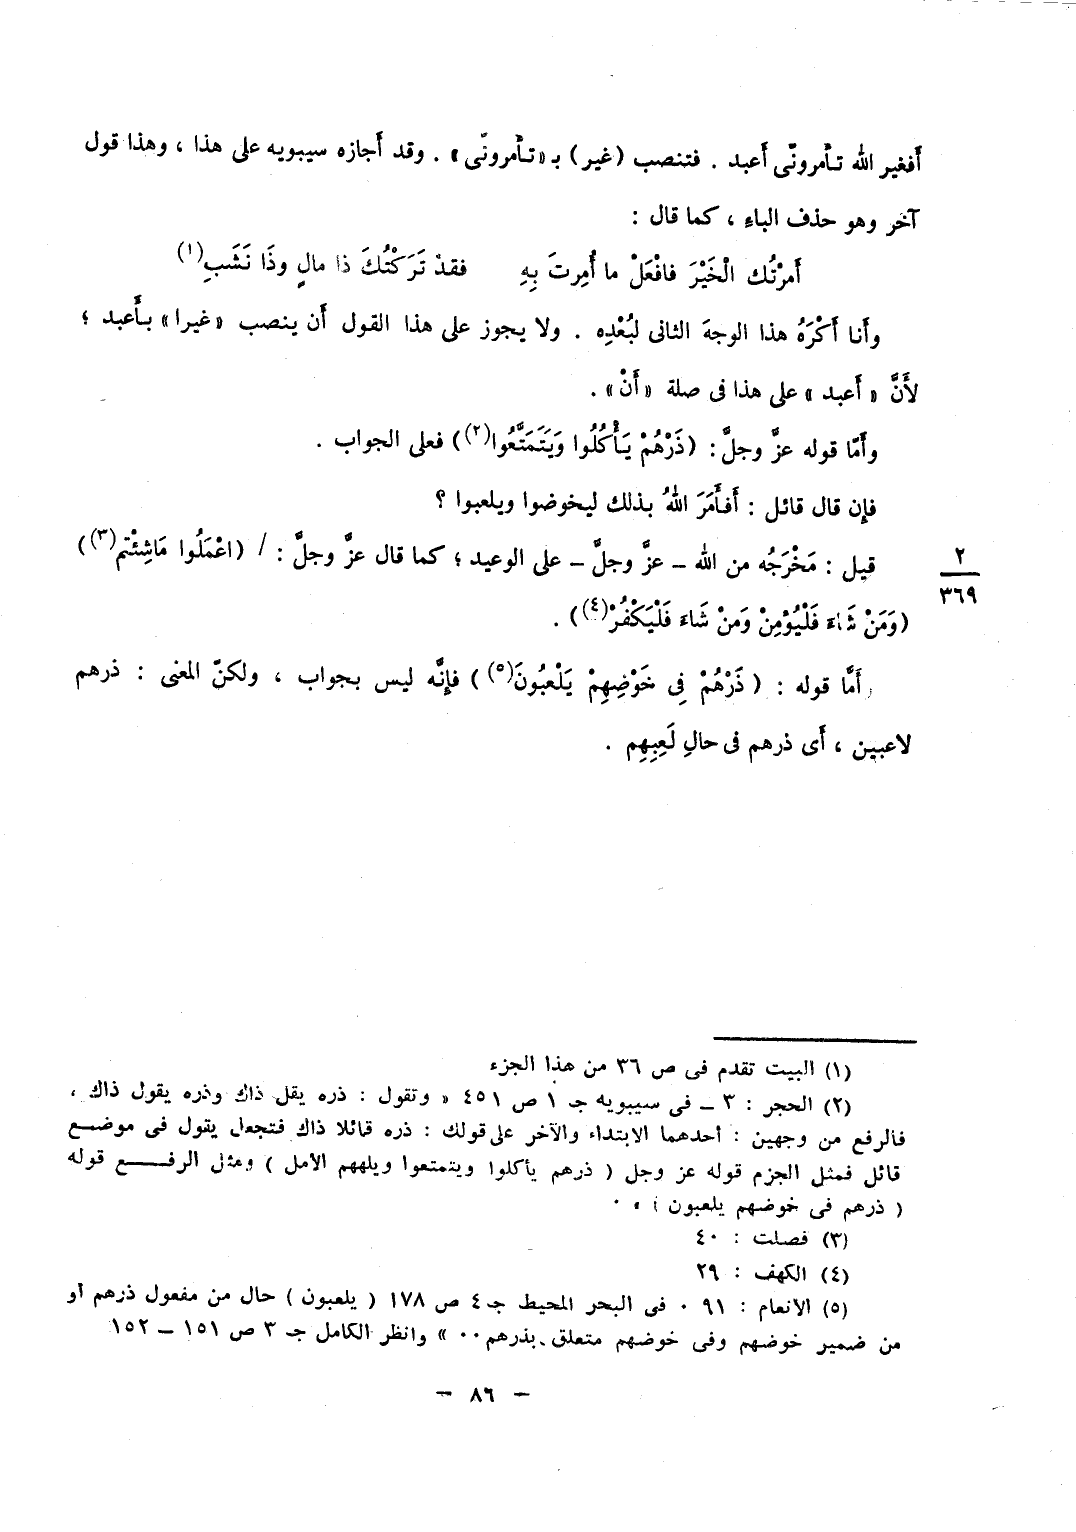 أَفغير الله تأْمرونّى أَعبد . فتنصب (غير) بـ «تأْمرونّى» . وقد أَجازه سيبويه على هذا ، وهذا قول
آخر وهو حذف الباءِ ، كما قال :
أَمرْتُك الْخَيْرَ فافْعَلْ ما أُمِرتَ بِهِ فقدْ تَرَكْتُكَ ذا مالٍ وذَا نَشَبِ(١)
وأَنا أَكْرَهُ هذا الوجهَ الثانى لبُعْدِه . ولا يجوز على هذا القول أَن ينصب «غيرا» بأَعبد ؛
لأَنَّ « أَعبد » على هذا فى صلة «أَنْ» .
وأَمّا قوله عزَّ وجلَّ : (ذَرْهُمْ يَأْكُلُوا وَيَتَمَتَّعُوا(٢)) فعلى الجواب .
فإِن قال قائل : أَفأَمَرَ اللهُ بذلك ليخوضوا ويلعبوا ؟
قيل : مَخْرَجُه من الله – عزَّ وجلَّ – على الوعيد ؛ كما قال عزَّ وجلَّ : / (اعْمَلُوا مَاشِئْتم(٣))
٢
٣٦٩
(وَمَنْ شَاءَ فَلْيُؤْمِنْ وَمَنْ شَاءَ فَلْيَكْفُرْ(٤)) .
أَمَّا قوله : ( ذَرْهُمْ فِى خَوْضِهِمْ يَلْعبُونَ(٥) ) فإِنَّه ليس بجواب ، ولكنّ المعنى : ذرهم
لاعبين ، أَى ذرهم فى حالِ لَعِبِهِم .
(١) البيت تقدم فى ص ٣٦ من هذا الجزء
(٢) الحجر : ٣ – فى سيبويه جـ ١ ص ٤٥١ « وتقول : ذره يقل ذاك وذره يقول ذاك ،
فالرفع من وجهين : أحدهما الابتداء والآخر على قولك : ذره قائلا ذاك فتجعل يقول فى موضع
قائل فمثل الجزم قوله عز وجل ( ذرهم يأكلوا ويتمتعوا ويلههم الأمل ) ومثل الرفع قوله
( ذرهم فى خوضهم يلعبون ) » .
(٣) فصلت : ٤٠
(٤) الكهف : ٢٩
(٥) الانعام : ٩١ . فى البحر المحيط جـ٤ ص ١٧٨ ( يلعبون ) حال من مفعول ذرهم أو
من ضمير خوضهم وفى خوضهم متعلق بذرهم .. » وانظر الكامل جـ ٣ ص ١٥١ – ١٥٢
– ٨٦ –